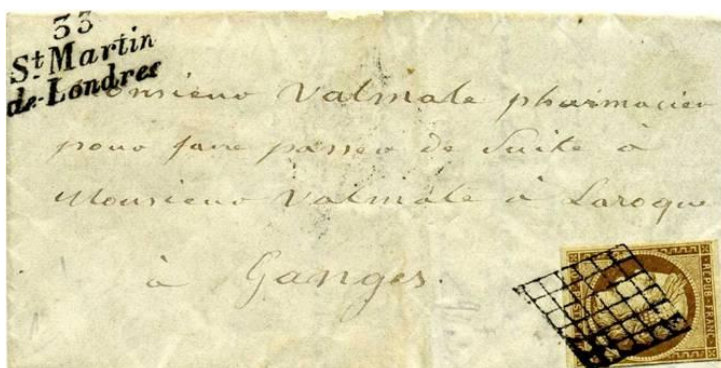 33
St Martin
de-Londres
Monsieur Valmale pharmacien
pour faire passer de Suite à
Monsieur Valmale à Laroque
à Ganges.
REPUB. FRANC